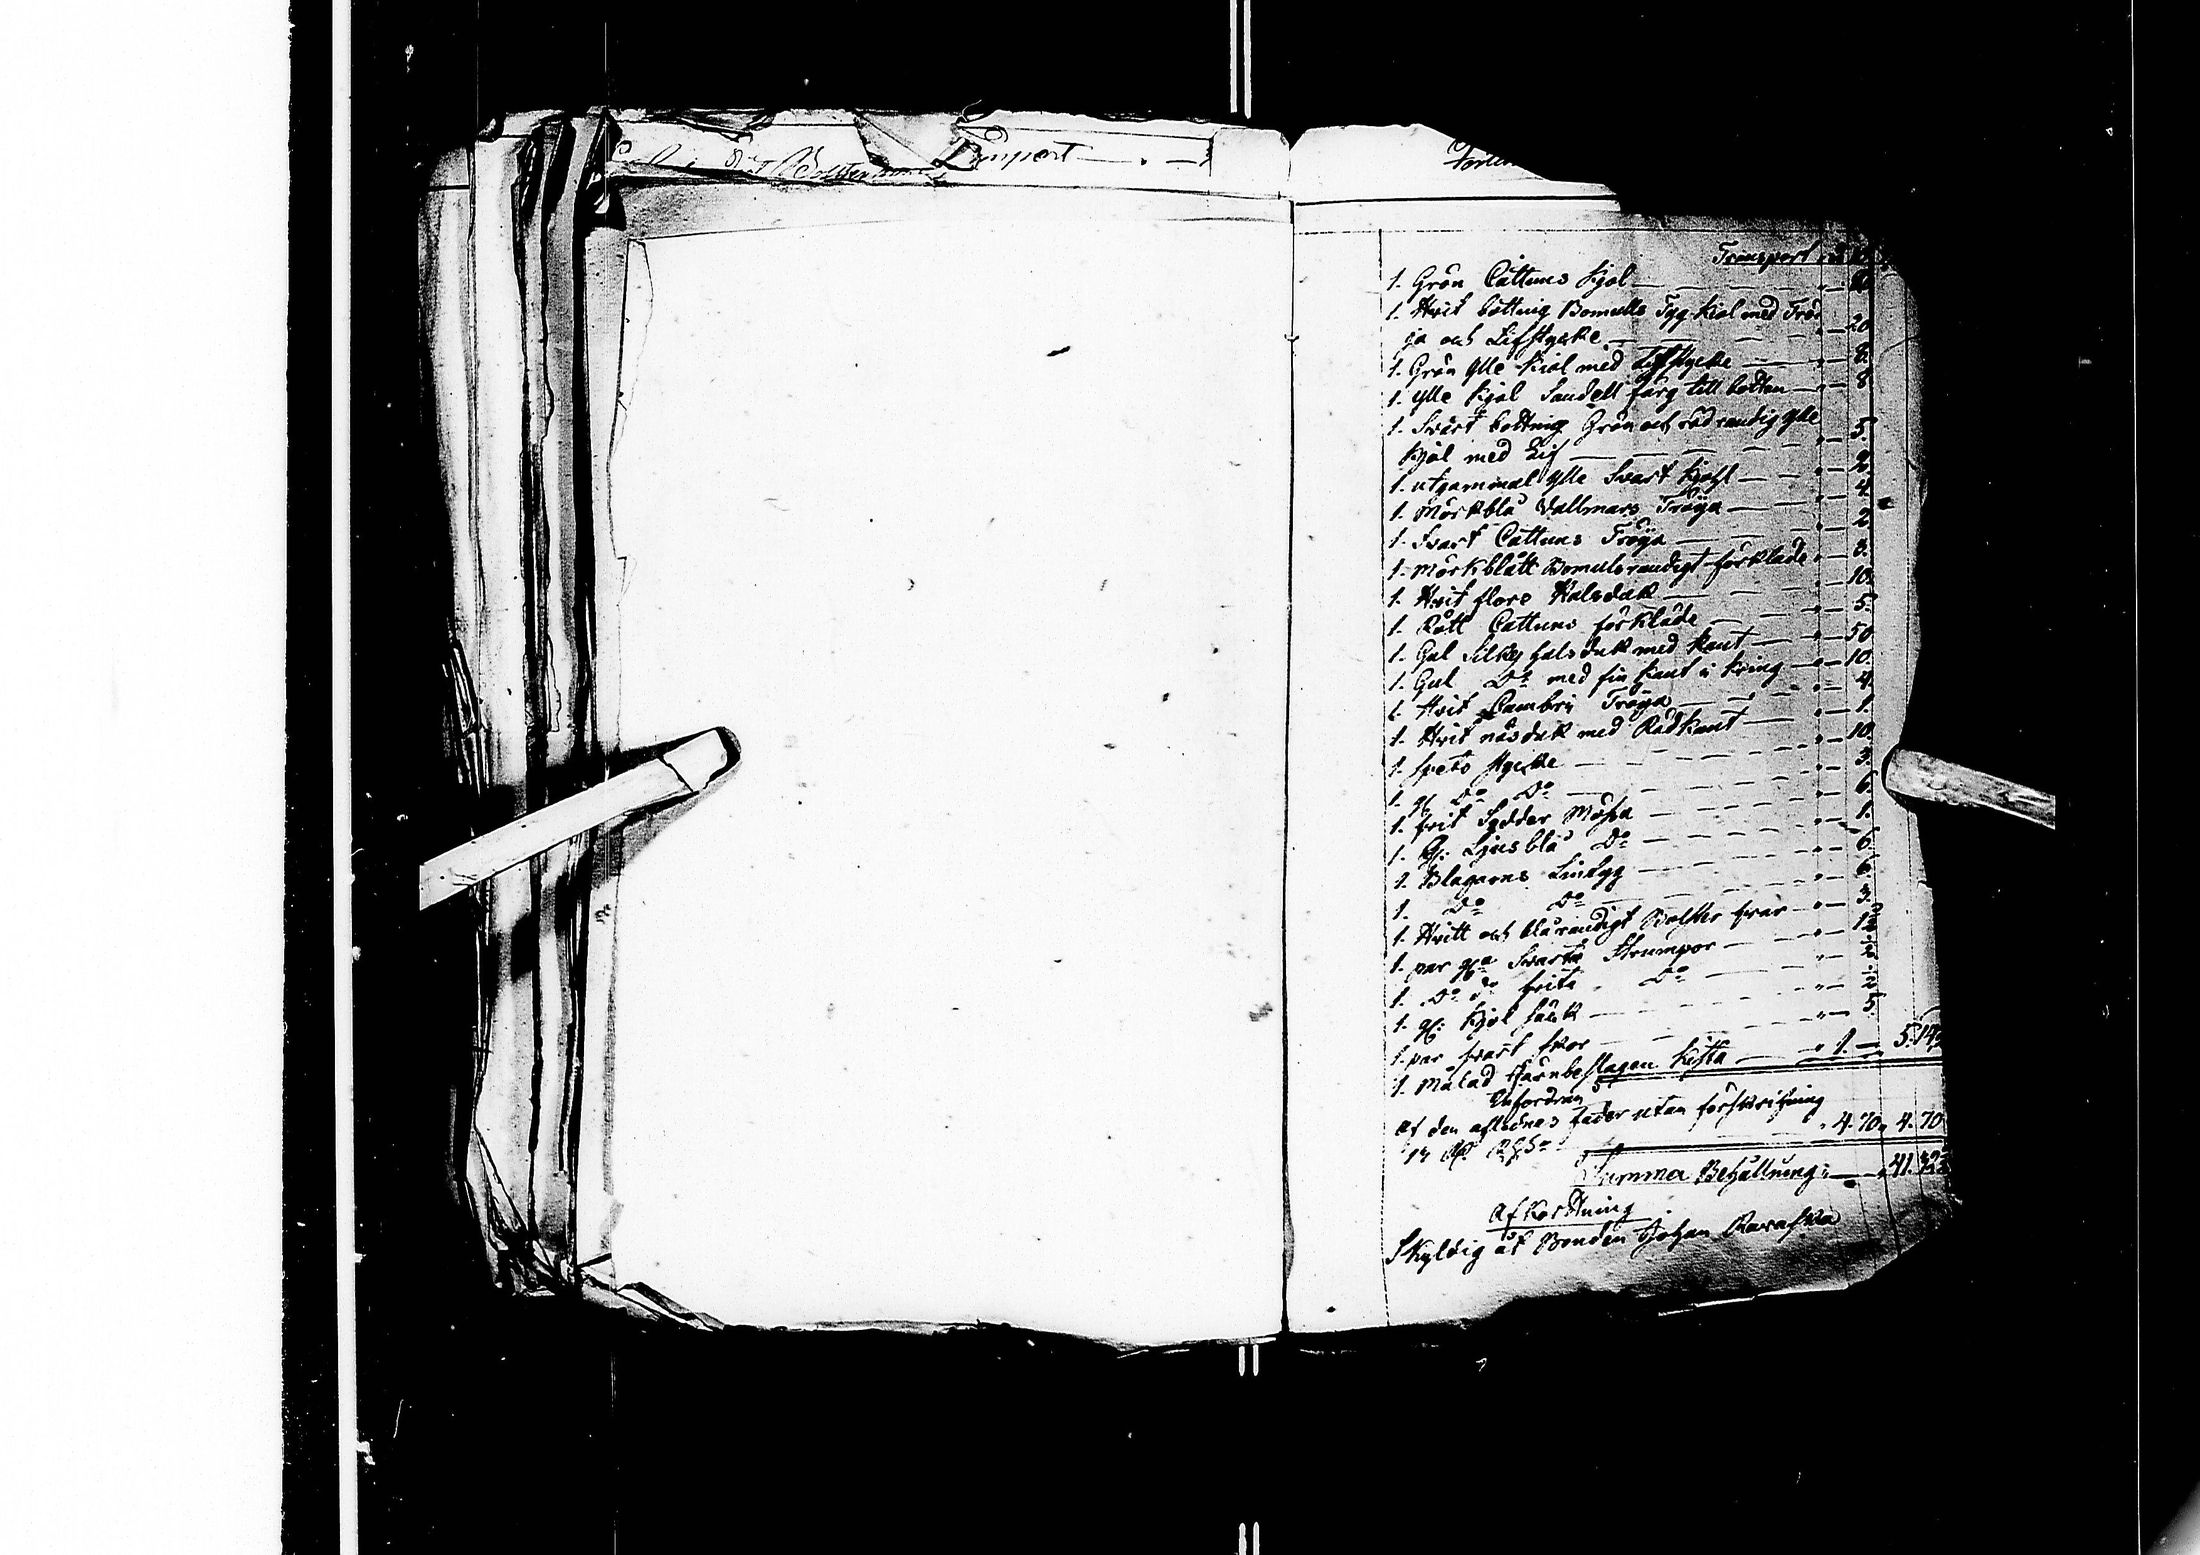 Transport
Transport
1. Grön Cattuns Kjol — 2
1. Hvit bottnig Bomulls Tyg kiol med Tröi
ja och Lifstycke — 20
1. Grön ylle kiol med Lifstycke — 8.
1. ylle kjol Sandell färg till botten — 8
1. Svart bottnig Grön och röd randig ylle
kjol med Lif — 5.
1. utgammal ylle Svart kjohl — 2
1. Mörkblå Vallmars Tröja — 4
1. Svart Cattuns Tröja — 2
1. Mörkblått Bomulsrandigt förkläde — 3.
1. Hvit flors Halsduk — 10.
1. Rått Cattuns förkläde — 5.
1. Gul Silkes halsduk med kant — 50
1. Gul Do med fin kant i kring — 10.
1. Hvit Cambri Tröja — 4.
1. Hvit näsduk med Röd kant — 1.
1. spets stycke — 10.
1. gl Do Do — 3.
1. hvit Sydder Mössa — 6.
1. Gl: Ljusblå Do — 1.
1. Blagarns Lintyg — 6
1. Do Do — 6.
1. Hvitt och blårandigt Bolster hvar — 3.
1. par gla Svarta Strumpor
1. Do do hvita Do
1. gl: kjol säck
1. par svart skor
1. Målad Järnbeslagen kista — 1. — 5.14
Utfordran
Af den aflidnas fader utan förskrifning
4.70, 4.70
Summa Behållning: — 41.
Afkortning
Skyldig åt Bonden Johan